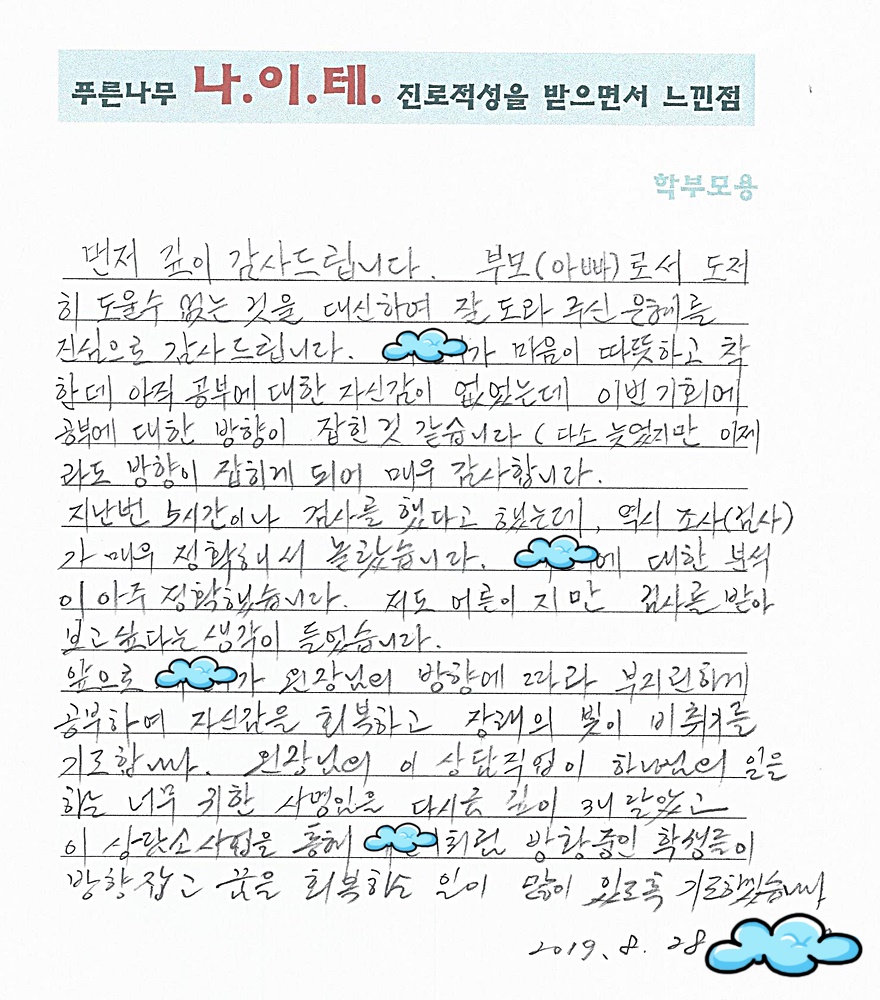 푸른나무 나.이.테. 진로적성을 받으면서 느낀점
학부모용
먼저 깊이 감사드립니다. 부모(아빠)로서 도저
히 도울수 없는 것을 대신하여 잘 도와 주신 은혜를
진심으로 감사드립니다. 가 마음이 따뜻하고 착
한데 아직 공부에 대한 자신감이 없었는데 이번 기회에
공부에 대한 방향이 잡힌 것 같습니다 (다소 늦었지만 이제
라도 방향이 잡히게 되어 매우 감사합니다.
지난번 5시간이나 검사를 했다고 했는데, 역시 조사(검사)
가 매우 정확해서 놀랐습니다. 에 대한 분석
이 아주 정확했습니다. 저도 어른이지만 검사를 받아
보고 싶다는 생각이 들었습니다.
앞으로 가 원장님의 방향에 따라 부지런하게
공부하여 자신감을 회복하고 장래의 빛이 비취기를
기도합니다. 원장님의 이 상담직업이 하나님의 일을
하는 너무 귀한 사명임을 다시금 깊이 깨달았고
이 상담소사업을 통해 처럼 방황중인 학생들이
방향잡고 꿈을 회복하는 일이 많이 있도록 기도하겠습니다
2019. 8. 28